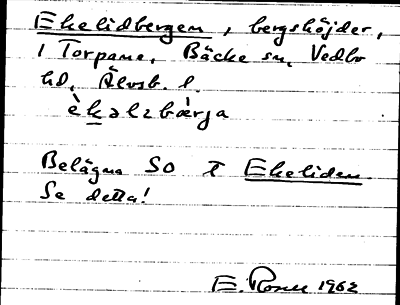 Ekelidbergen, bergshöjder,
i Torpane, Bäcke sn, Vedbo
hd, Älvsb. l.
è̀kəlɩbær̀ja
Belägna SO i Ekeliden.
Se detta!
E. Rosell 1962